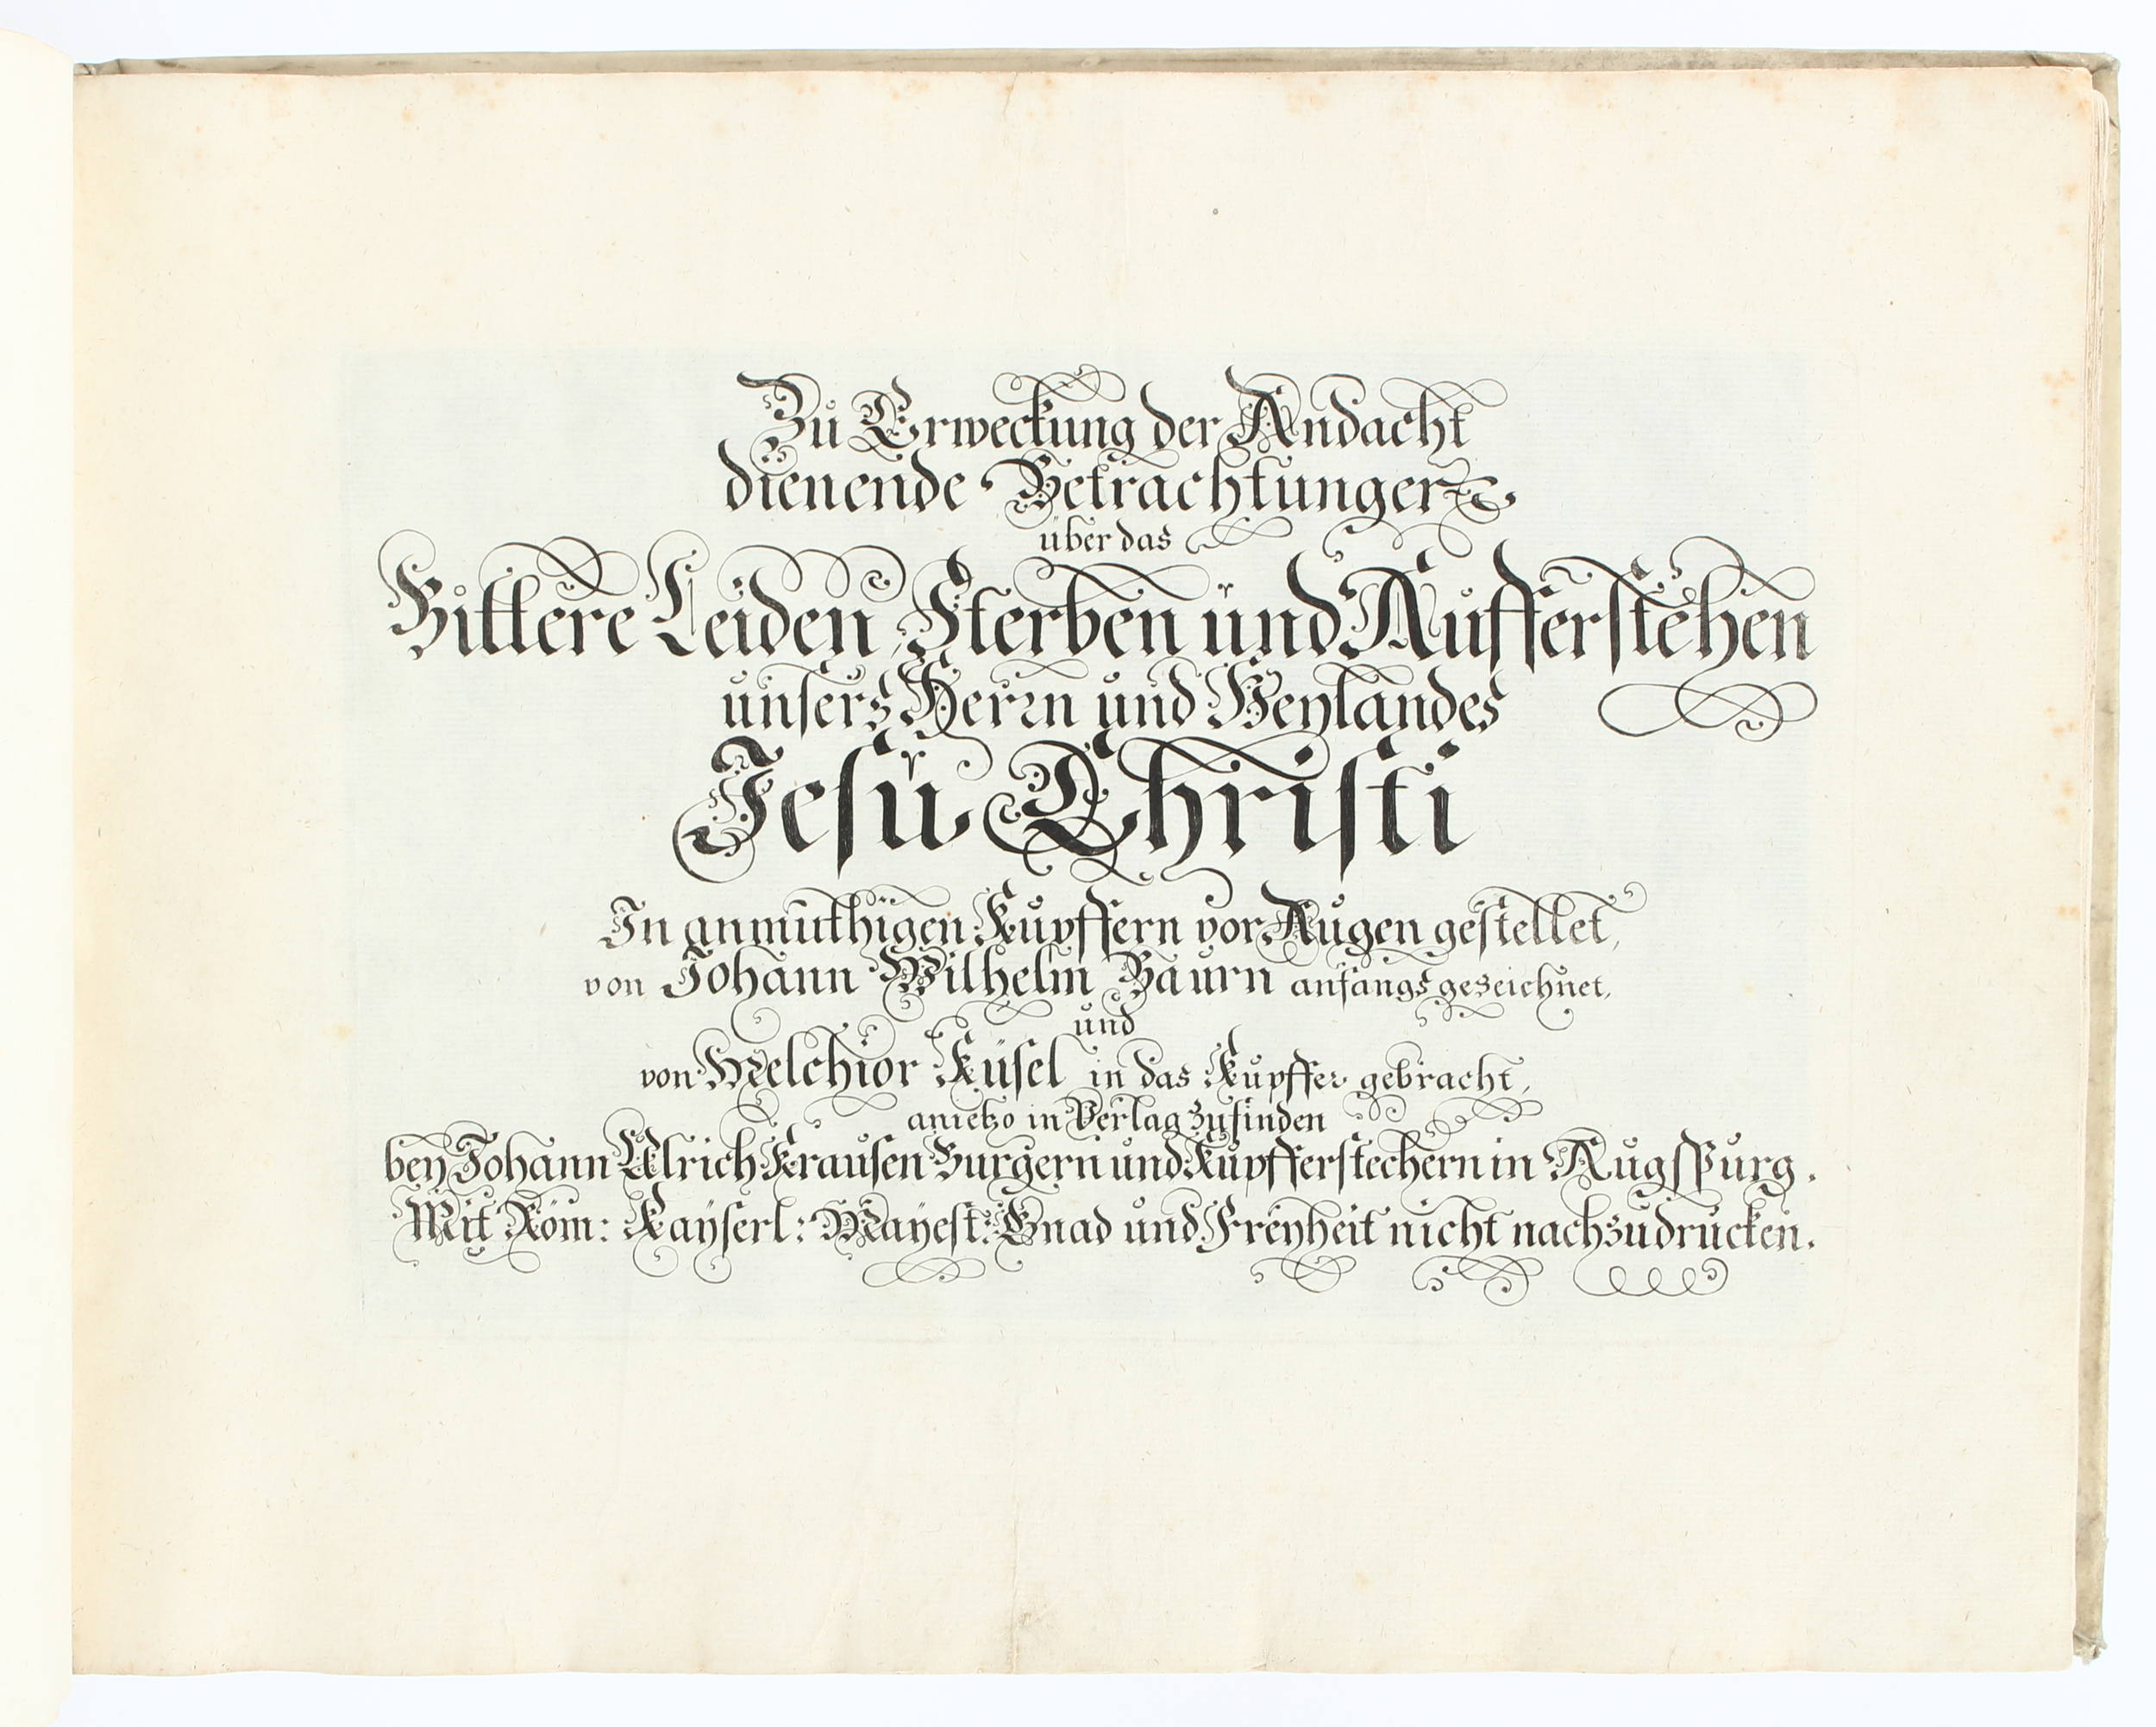 Zu Erweckung der Andacht
dienende Betrachtungen
über das
Bittere Leiden, Sterben und Aufferstehen
unsers Herrn und Heylandes
Jesu Christi
In anmuthigen Kupffern vor Augen gestellet,
von Johann Wilhelm Baurn anfangs gezeichnet,
und
von Melchior Küsel in das Kupffer gebracht,
anietzo in Verlag zufinden
bey Johann Ulrich Krausen Burgern und Kupfferstechern in Augspurg.
Mit Röm: Kayserl: Mayest: Gnad und Freyheit nicht nachzudrucken.